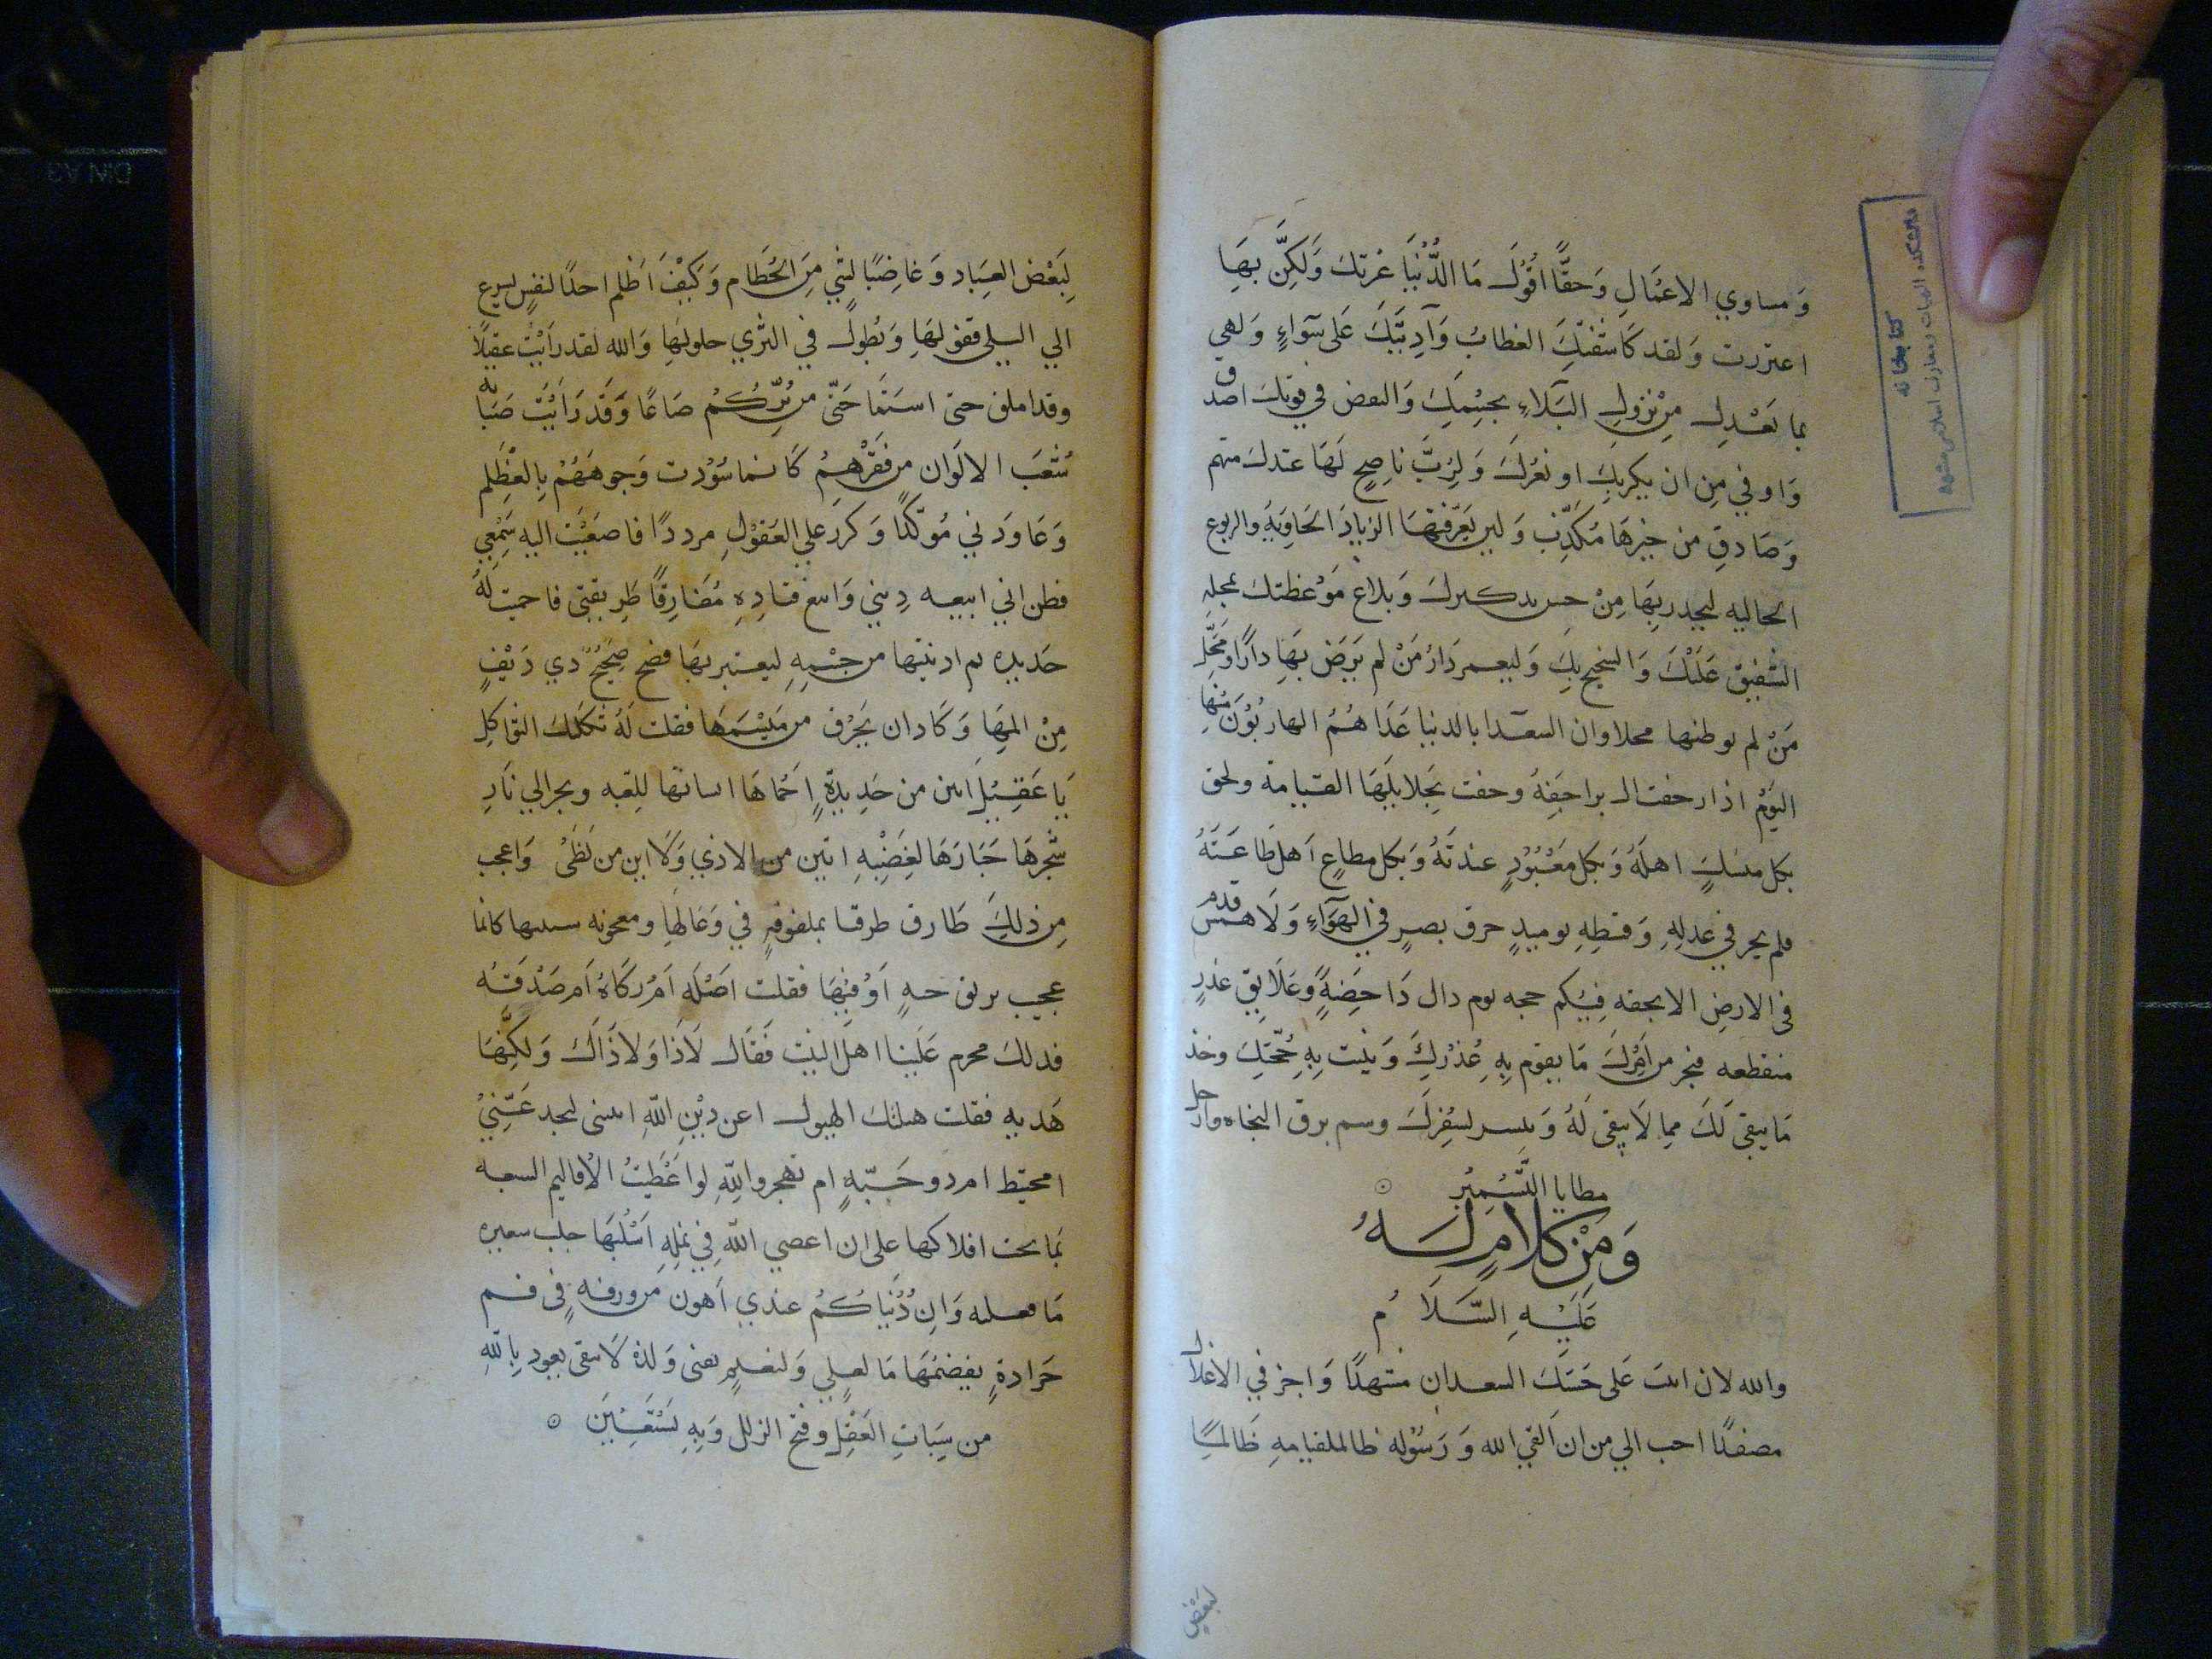 وَمساوي الاعمَالِ وَحقًّا اقُولُ مَا الدُّنْيَا غرتكَ وَلَكِنَّ بِهَا
اعتررت وَلقد كَاشفتكَ الغطاتُ وَآدِنَتكَ عَلى سَوَاءٍ وَلهي
بما تعْدِك مِنْ نزولِ البَلَاءِ بجسْمِكَ وَالنقض في قوتكَ اصدق
وَاوفي مِن ان يكربكَ او تغرك وَلِرُبَّ نَاصِحٍ لَهَا عندكَ متهم
وَصَادقٍ من خبرهَا مُكَذّب وَلين تعَرّفتهَا الزيادَ الخاوِيَةُ والربوع
الخاليه ليجدربهَا مِنْ حسں تدكيرك وَبلاغ مَوْعظتك بمجله
الشفيق عَلَيْكَ وَالشحيح بكَ وَليعمر دَارُ مَنْ لم يَرَضَ بهَا دارًا وَمَحلّ
مَنْ لم يوطنها محلا وان السعدَا بالدنيا غدَا هُمُ الهاربُوْنَ مِنْهَا
اليَوْمَ اذا رحفت الراجفِةُ وحفت بِجَلايلِهَا القيَامة ولحق
بكل منسَكٍ اهلهُ وَبكل معْبُوْدٍ عندتَهُ وَبكل مطاعٍ اَهل طَاعتَهُ
فلم يجر في عدلهِ وَقسطِهِ يوميدٍ حرق بصرٍ في الهَوَآءِ وَلَا همس قدم
في الارضِ الا بحقه فِيْكم حجه يوم داك دَاحِضَةً وَعَلَايق عذرٍ
منقطعه فتجر من اَمْرِكَ مَا يقوم بهِ عُذْرُكَ وَيثبت بِهِ حُجّتِكَ وخذ
مَا يبقي لَكَ مما لَا يبقى لَهُ وَيسر لسفرِكَ وسم برق النجاه وارحل
مطايا التَّشْمِيْر ۝
وَمِنْ كلَامٍ لَهُ
عَلَيْهِ السَّلَامُ
والله لان ابتَ عَلى حَسَكَ السعدان مستهدًا وَاجز في الاغلال
مصفدًا احب الي من ان اَلقي الله وَرَسُوْله ظالما لقيامهِ ظَالمِاً
لبَعْضِ
لِبَعْض العِبَاد وَغاضِبًا لشي مِنَ الحُطَام وَكَيْفَ اَظلم احدًا لنفسٍ يسرع
الي البلي قفولهَا وَتطول في الثري حلولهَا وَالله لقد رَاَيْتُ عقيلًا
وقد املق حتى استمَاحَنى من بُرّكُمْ صَاعًا وَقَد رَاَيْتُ صَبيانه
شُعْثَ الالَوان من فَقْرِهِمُ كَانما سُوّدت وَجوهَهُمْ بِالعْظلم
وَعَاوَدني مُوكّدًا وَكرر علي العَقوْلِ مرددًا فاصغيْت اليه سَمْعي
فظن اني ابيعه دِيْني وَاتبع قتَادِهِ مُفَارِقًا طَريقتي فاحميت لهُ
حَديده ثم ادنيتها من جسْمِهِ ليعتبر بهَا فضج صِجيْجُ دي دَيْفٍ
مِنْ المِهَا وَكَادان يَحْرَق من مَيْسَمهَا فقلت لَهُ ثكلتك الثواكلِ
يَا عَقِيْلُ اتئن من حَدِيدَةٍ اَحْمَاهَا انسانهَا للعبه وبجرالي نَارٍ
شجرهَا جَبَارَهَا لغَضَبِهِ اتين من الاذي وَلَا اين من لظَىْ وَاعجب
مِن ذلِكَ طَارق طرقنا بملفوفهٍ في وَعَالهَا ومعجونه سىىىها كانما
عجىب بريق حيةٍ اَوْ قيْهَا فقلت اَصْلَه اَمْ زكَاةُ اَم صَدْقَته
فدلك محرم عَليْنا اهل البَيْت فَقَال لَاذَا وَلَاذَاكَ وَلكنّهَا
هَديه فقلت هبلتكَ الهبول اعن ديْنِ اللّهِ اتىتنى لتجد عَنّيْ
امختبط ام دو حَبّةٍ ام تهجر واللّهِ لو اعْطَيْتُ الاقاليم السبعه
بما تحت افلاكها على ان اعصي اللهَ في نملهِ اَسْلُبَهَا جلب سعيره
مَا فعلته وَان دُنيَاكُمْ عندي اَهون من ورقهٍ في فم
جَرادةٍ يقضمُهَا مَا لعلي وَلنعيمٍ يفنى وَلذة لَا تبقى نعود بِاللّهِ
من سِبَاتِ العَقلِ وقبح الزلل وَبِهِ نَسْتَعِيْنَ ۝
كتابخانه
دانشكده الهيات و معارف اسلامى مشهد